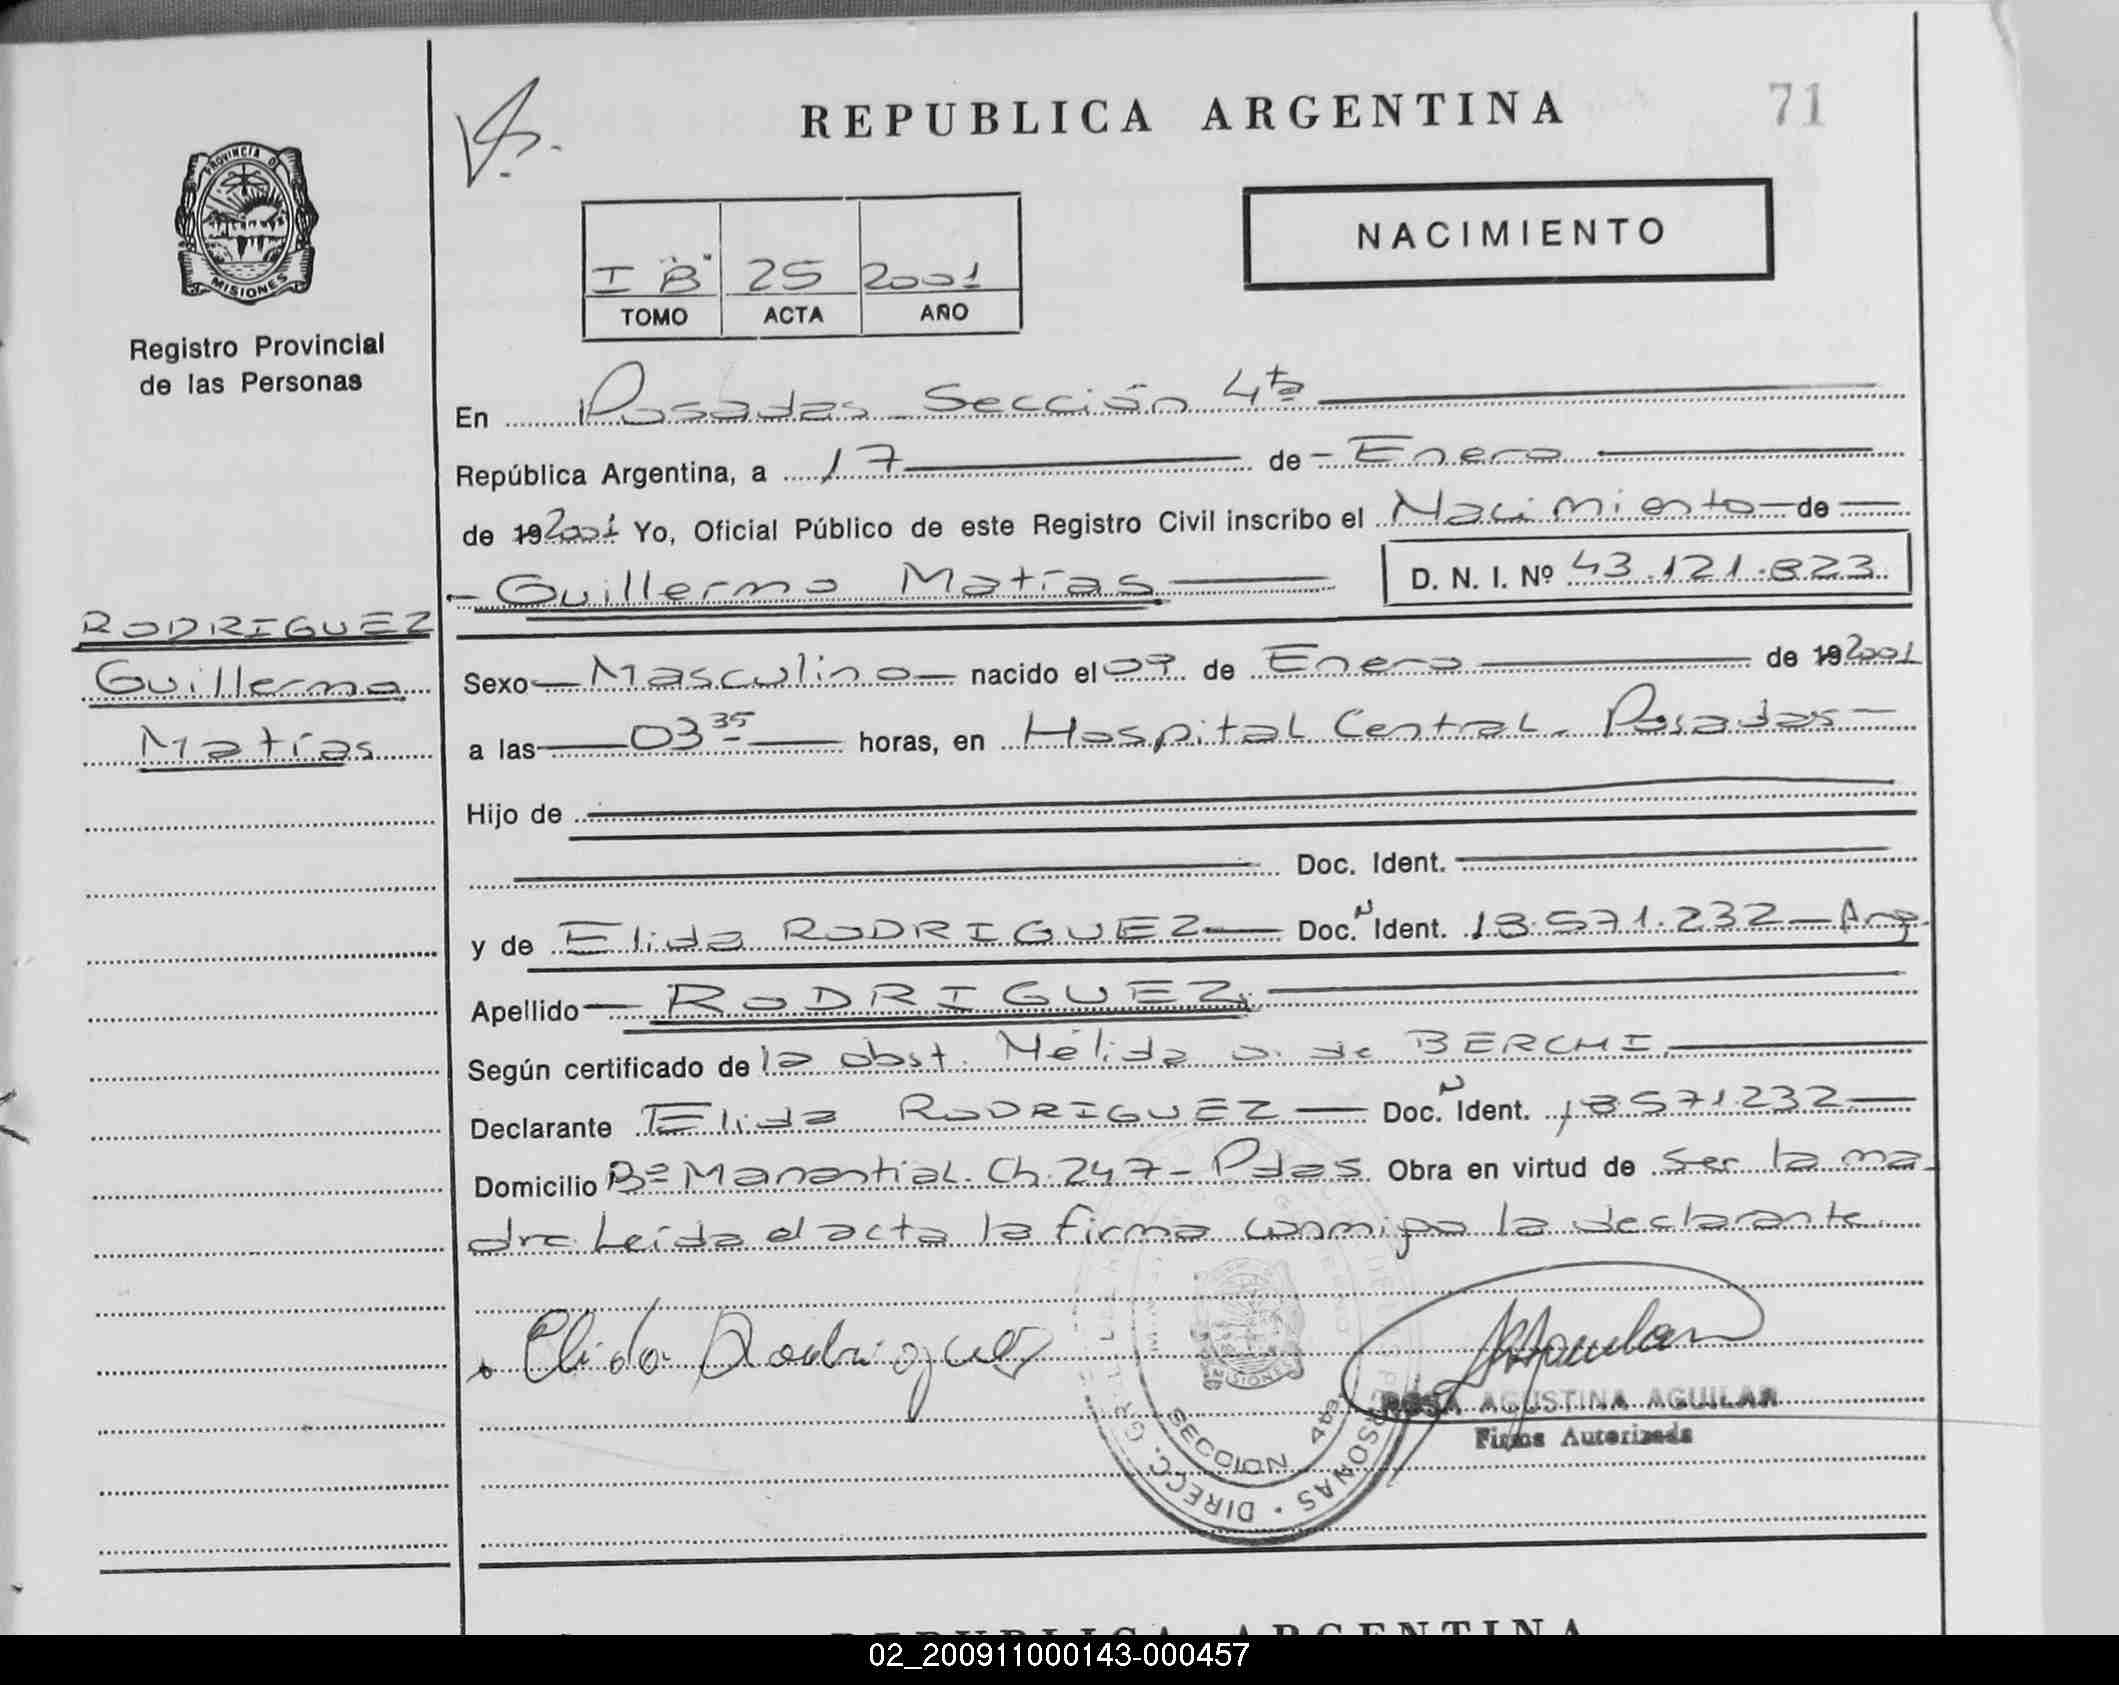 REPUBLICA ARGENTINA
71
PROVINCIA DE
MISIONES
Registro Provincial
de las Personas
NACIMIENTO
I "B" 25 2001
TOMO ACTA AÑO
En Posadas Sección 4ta
República Argentina, a 17 de Enero
de 19 2001 Yo, Oficial Público de este Registro Civil inscribo el Nacimiento de
Guillermo Matías D. N. I. Nº 43.121.823
RODRIGUEZ
Guillermo
Matías
Sexo Masculino nacido el 09 de Enero de 19 2001
a las 03 35 horas, en Hospital Central. Posadas
Hijo de
Doc. Ident.
y de Elida RODRIGUEZ Doc. N Ident. 18.571.232 - Arg.
Apellido RODRIGUEZ
Según certificado de la obst. Nélida de BERCHI
Declarante Elida RODRIGUEZ Doc. N Ident. 18571232
Domicilio Bº Manantial. Ch. 247 - Pdas. Obra en virtud de ser la ma
dre. Leída el acta la firma conmigo la declarante
Elida Rodriguez
MISIONES
SECCION 4ta
DIRECC. GRAL. PERSONAS
ROSA AGUSTINA AGUILAR
Firma Autorizada
REPUBLICA ARGENTINA
02_200911000143-000457